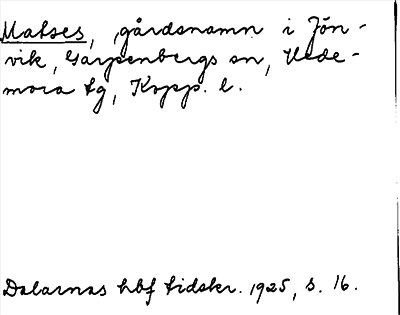 Matses, gårdsnamn i Jön-
vik, Garpenbergs sn, Hede-
mora tg, Kopp. l.
Dalarnas hbf tidskr. 1925, s. 16.